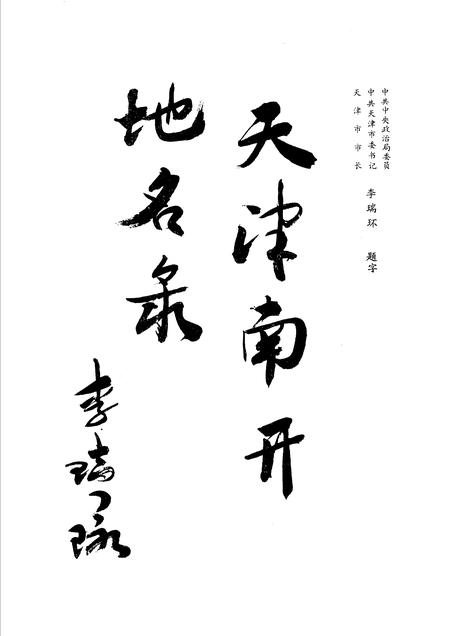 中共中央政治局委员
中共天津市委书记
天津市市长
李瑞环 题字
天津南开
地名录
李瑞环